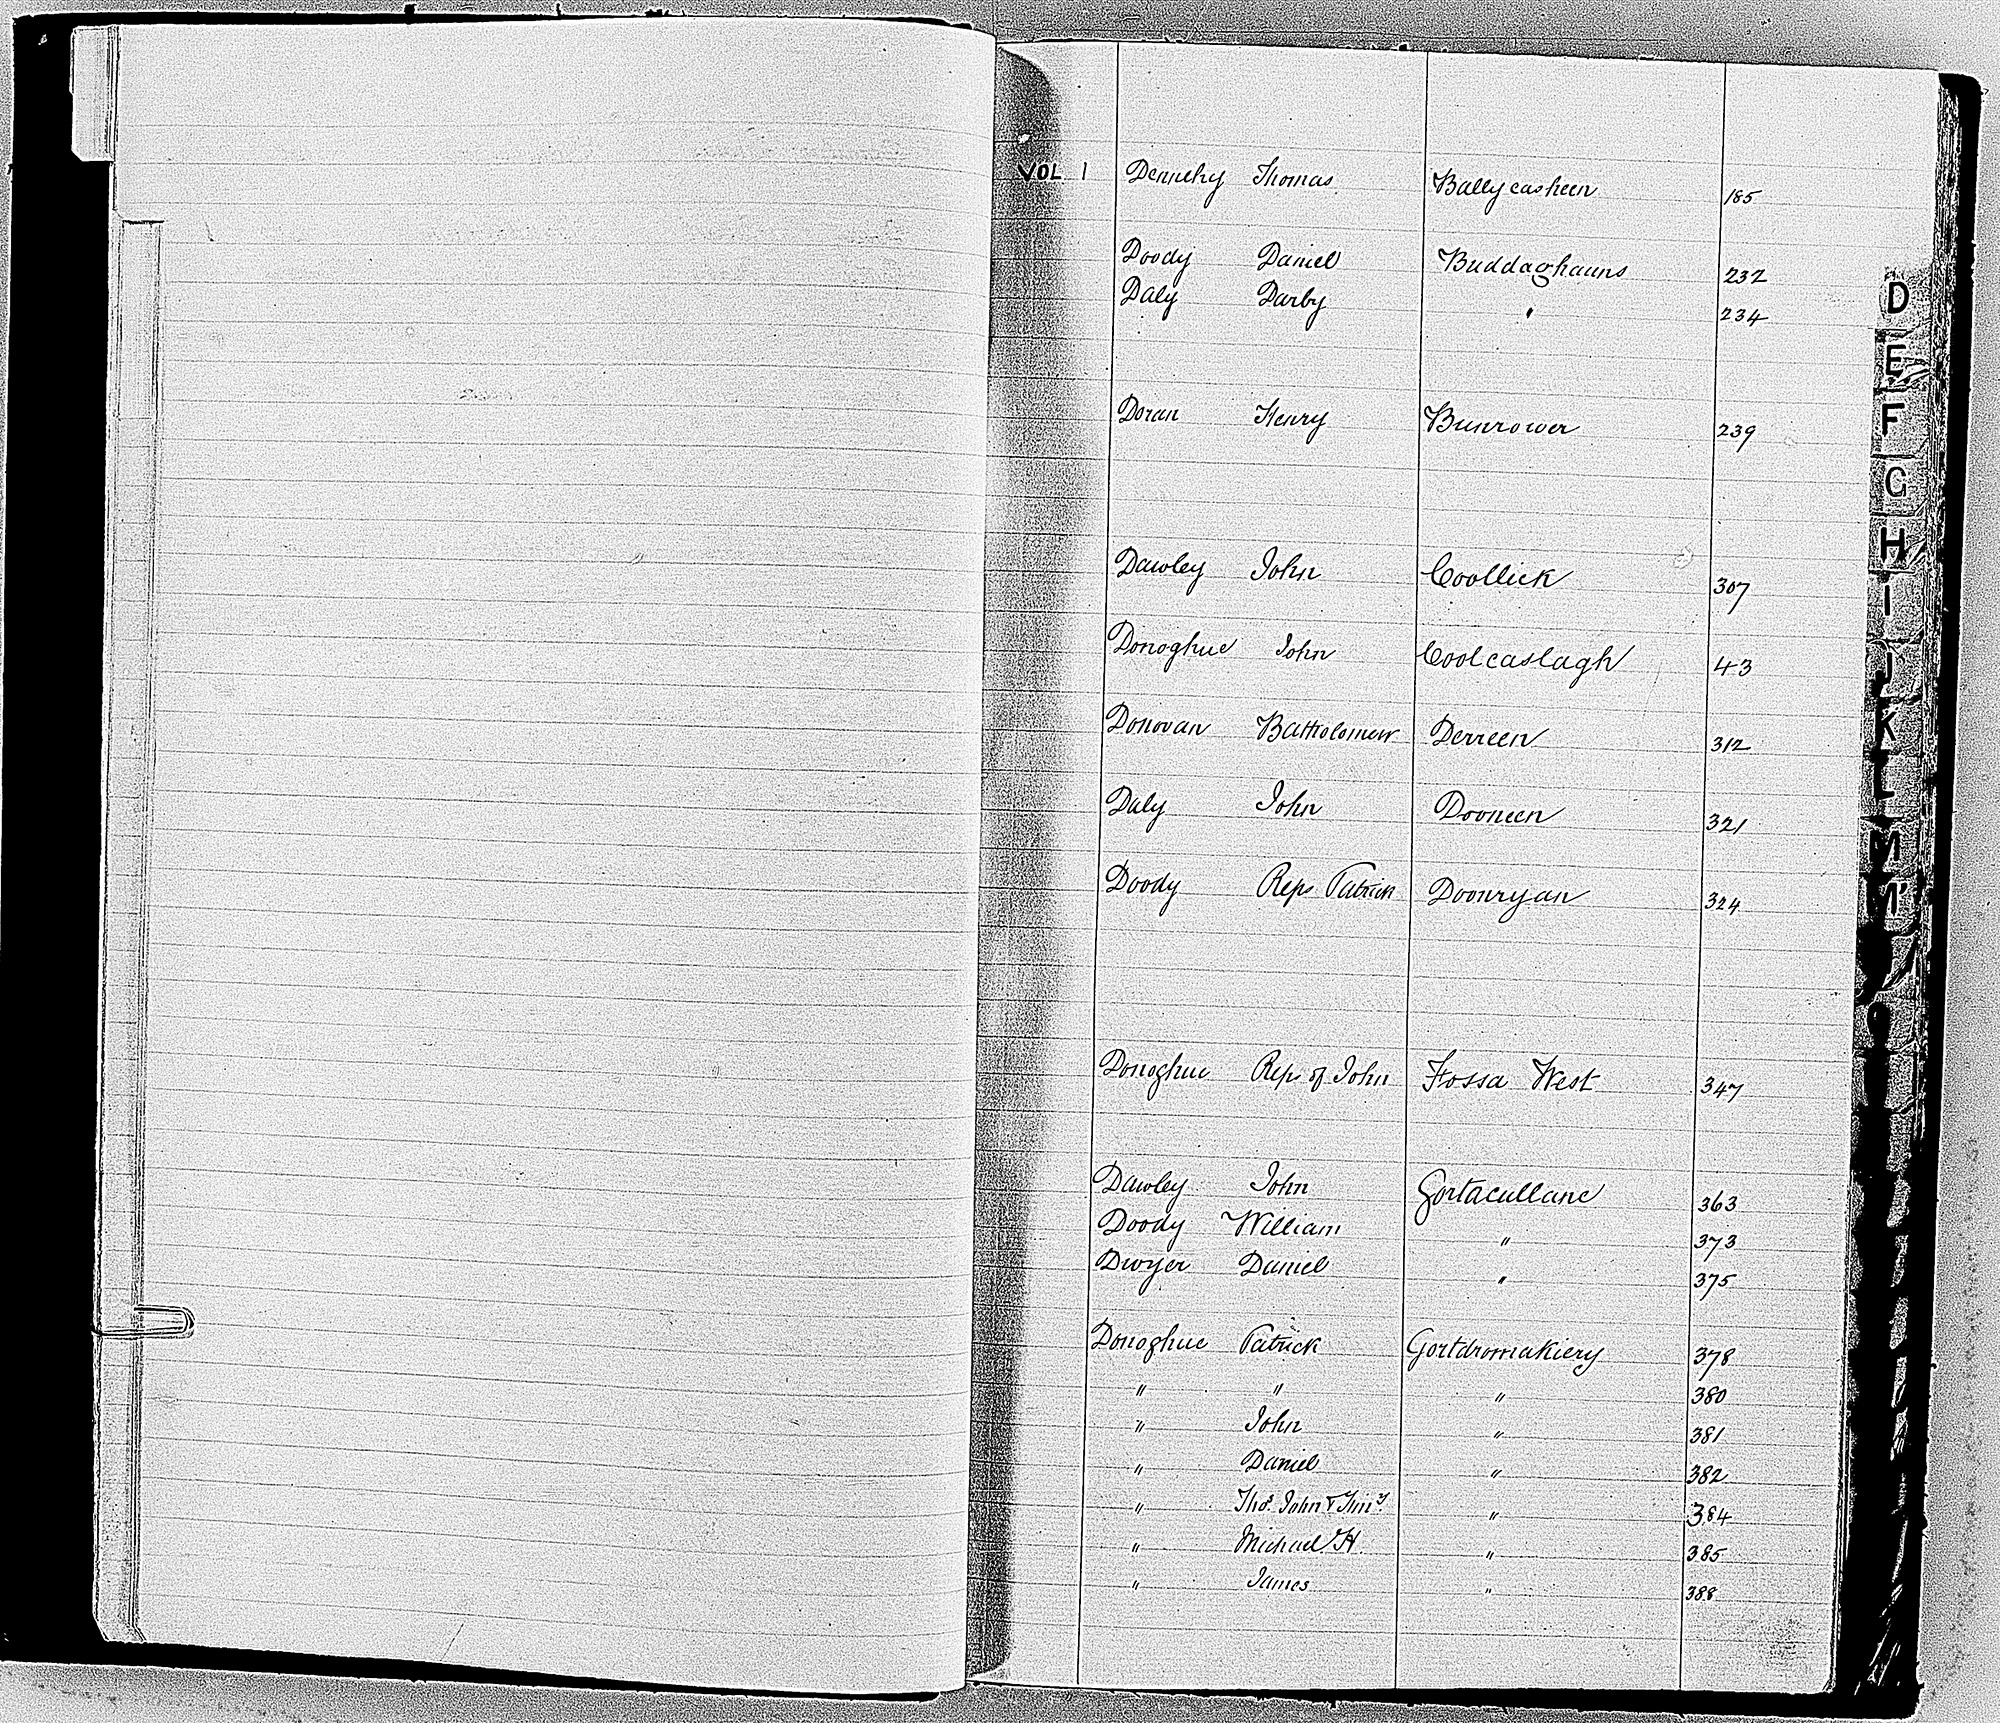 VOL 1 Dennehy Thomas Ballycasheen 185
Doody Daniel Buddaghauns 232
Daly Darby " 234
Doran Henry Bunrower 239
Dawley John Coollick 307
Donoghue John Coolcaslagh 43
Donovan Batholomew Derreen 312
Daly John Dooneen 321
Doody Reps Patrick Doonryan 324
Donoghue Reps of John Fossa West 347
Dawley John Gortacullane 363
Doody William " 373
Dwyer Daniel " 375
Donoghue Patrick Gortdromakiery 378
" " " 380
" John " 381
" Daniel " 382
" Thos. John & Timy. " 384
" Michael H. " 385
" James " 388
D
E
F
G
H
I
J
K
L
M
Mc